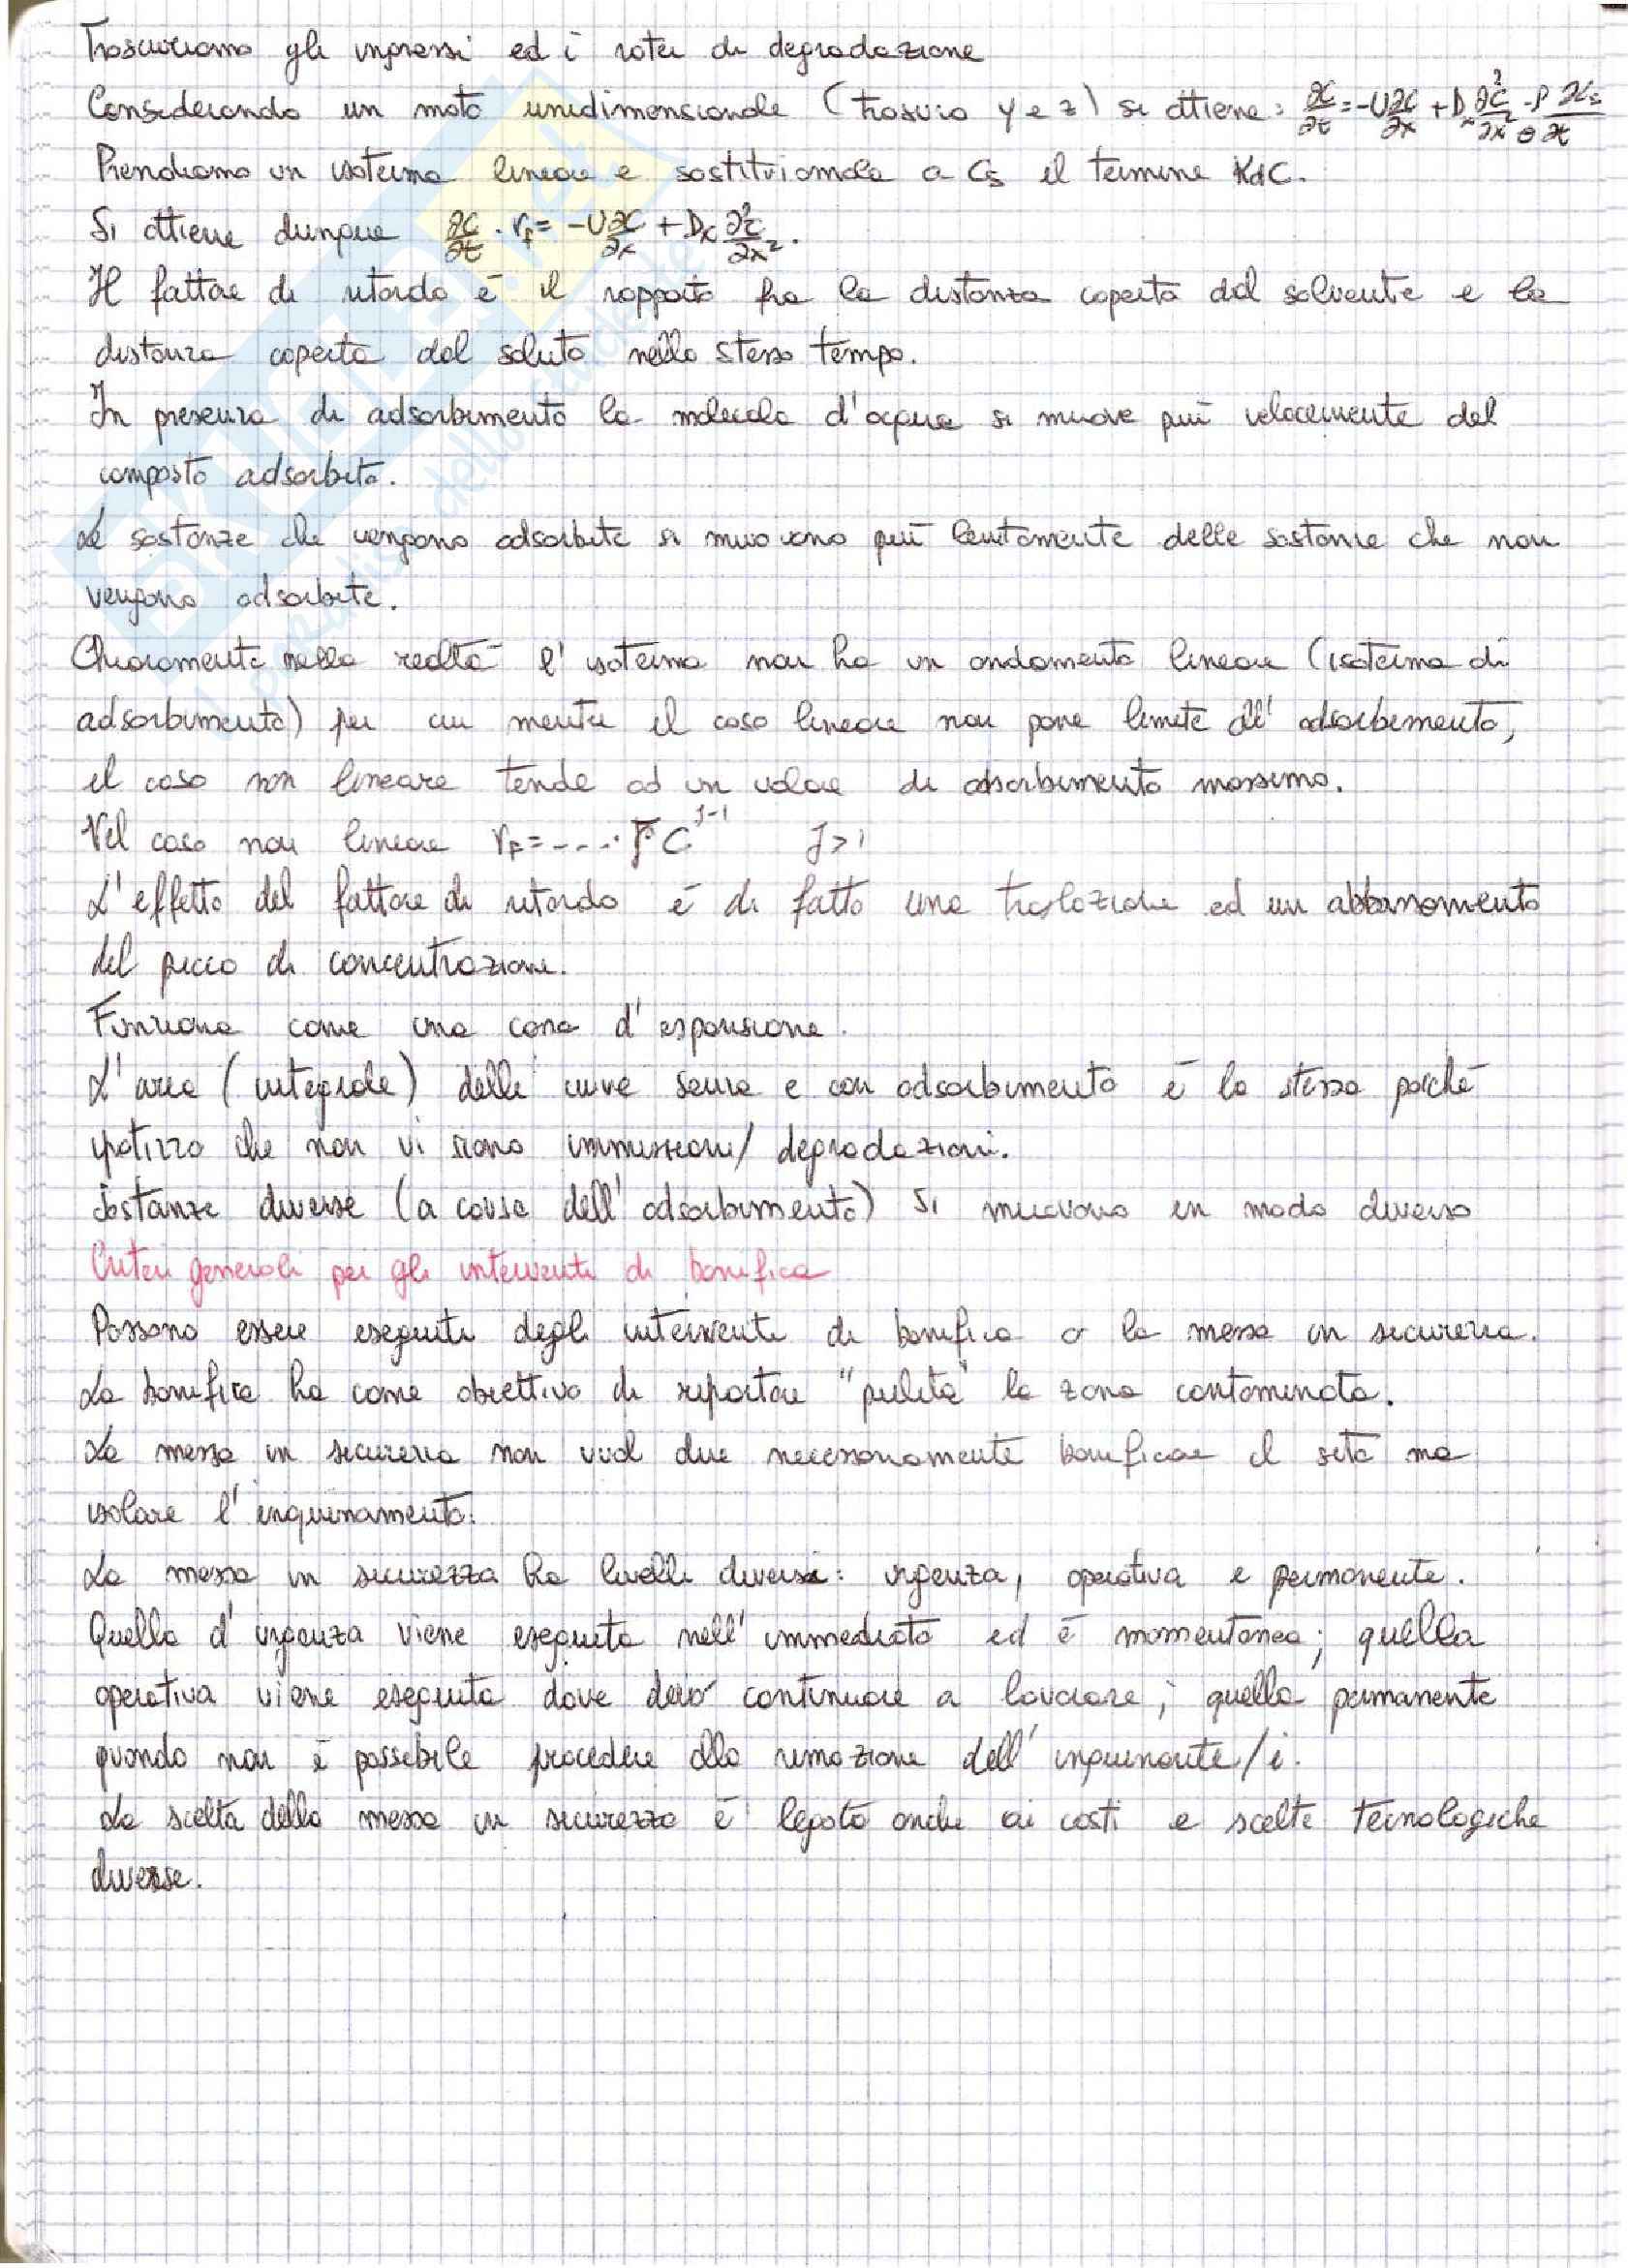 Trascuriamo gli ingressi ed i ratei di degradazione
Considerando un moto unidimensionale (trascuro y e z) si ottiene: ∂C/∂t = -U ∂C/∂x + Dx ∂²C/∂x² - ρ/θ ∂Cs/∂t
Prendiamo un isoterma lineare e sostituiamola a Cs il termine KdC.
Si ottiene dunque ∂C/∂t · rf = -U ∂C/∂x + Dx ∂²C/∂x².
Il fattore di ritardo è il rapporto fra la distanza coperta dal solvente e la
distanza coperta dal soluto nello stesso tempo.
In presenza di adsorbimento la molecola d'acqua si muove più velocemente del
composto adsorbito.
Le sostanze che vengono adsorbite si muovono più lentamente delle sostanze che non
vengono adsorbite.
Chiaramente nella realtà l'isoterma non ha un andamento lineare (isoterma di
adsorbimento) per cui mentre il caso lineare non pone limite all'adsorbimento,
il caso non lineare tende ad un valore di adsorbimento massimo.
Nel caso non lineare rF = ---· J· C^J-1 J>1
L'effetto del fattore di ritardo è di fatto una traslazione ed un abbassamento
del picco di concentrazione.
Funziona come una cassa d'espansione.
L'area (integrale) delle curve senza e con adsorbimento è la stessa poiché
ipotizzo che non vi siano immissioni/degradazioni.
Sostanze diverse (a causa dell'adsorbimento) si muovono in modo diverso
Criteri generali per gli interventi di bonifica
Possono essere eseguiti degli interventi di bonifica o la messa in sicurezza.
La bonifica ha come obiettivo di riportare "pulita" la zona contaminata.
La messa in sicurezza non vuol dire necessariamente bonificare il sito ma
isolare l'inquinamento.
La messa in sicurezza ha livelli diversi: urgenza, operativa e permanente.
Quella d'urgenza viene eseguita nell'immediato ed è momentanea; quella
operativa viene eseguita dove devo continuare a lavorare; quella permanente
quando non è possibile procedere alla rimozione dell'inquinante/i.
La scelta della messa in sicurezza è legata anche ai costi e scelte tecnologiche
diverse.